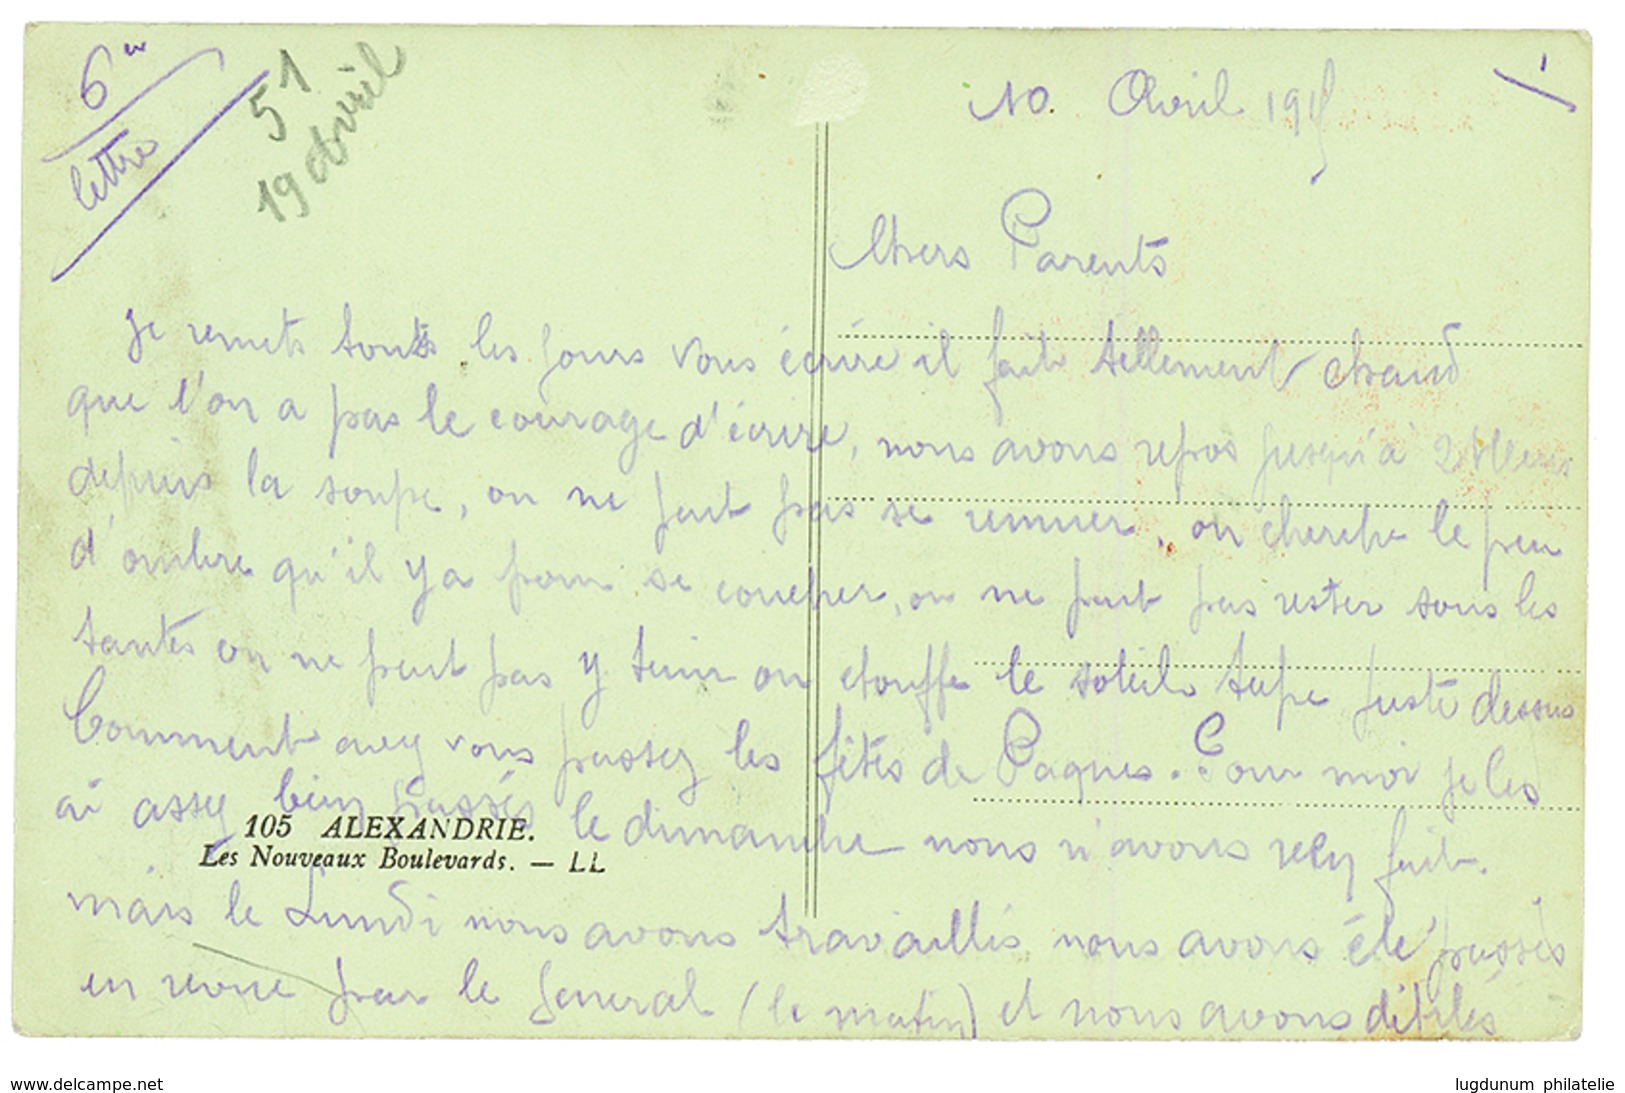 6me
lettre
51
19 avril
10. Avril 1915
1
Chers Parents
Je remets touts les jours vous écrire il fait tellement chaud
que l'on a pas le courage d'écrire, nous avons repos jusqu'à 2 Heures
depuis la soupe, on ne peut pas se remuer, on cherche le peu
d'ombre qu'il y a pour se coucher, on ne peut pas rester sous les
tantes on ne peut pas y tenir on etouffe le soleil tape juste dessus
Comment avez vous passez les fêtes de Paques. Pour moi je les
ai assez bien passés le dimanche nous n'avons rien fait.
105 ALEXANDRIE.
Les Nouveaux Boulevards. — LL
mais le Lundi nous avons travaillés nous avons été passés
en revue par le General (le matin) et nous avons défilés
www.delcampe.net
lugdunum philatelie